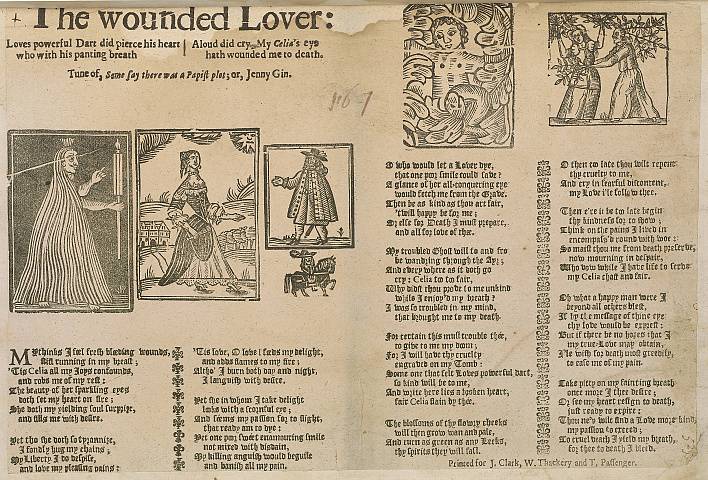 The wounded Lover:
Loves powerful Dart did pierce his heart
who with his panting breath
Aloud did cry, My Celia's eye
hath wounded me to death.
Tune of, Some say there was a Papist plot; or, Jenny Gin.
167
MEthinks I feel fresh bleeding wounds,
still running in my breast;
'Tis Celia all my Joys confounds,
and robs me of my rest:
The beauty of her sparkling eyes
doth set my heart on fire;
She doth my yielding soul surprize,
and fills me with desire.
Yet tho she doth so tyrannize,
I fondly hug my chains;
My Liberty I do despise,
and love my pleasing pains:
'Tis love, O love! feeds my delight,
and adds flames to my fire;
Altho' I burn both day and night,
I languish with desire.
Yet she in whom I take delight
looks with a scornful eye;
And seems my passion for to slight,
that ready am to dye:
Yet one poor sweet enamouring smile
not mixed with disdain,
My killing anguish would beguile
and banish all my pain.
O who would let a Lover dye,
that one poor smile could save?
A glance of her all-conquering eye
would fetch me from the Grave.
Then be as kind as thou art fair,
'twill happy be for me;
Or else for Death I must prepare,
and all for love of thee.
My troubled Ghost will to and fro
be wandring through the Ayr;
And every where as it doth go
cry: Celia too too fair,
Why didst thou prove to me unkind
while I enjoy'd my breath?
I was so troubled in my mind,
that brought me to my death.
For certain this must trouble thee,
to give to me my doom;
For I will have thy cruelty
engraved on my Tomb:
Some one that felt Loves powerful dart,
so kind will be to me,
And write here lies a broken heart,
fair Celia slain by thee.
The blossoms of thy flowry cheeks
will then grow wan and pale,
And turn as green as any Leeks,
thy spirits they will fail.
O then too late thou wilt repent
thy cruelty to me,
And cry in fearful discontent,
my Love i'le follow thee.
Then e're it be too late begin
thy kindness for to show;
Think on the pains I lived in
encompass'd round with woe:
So mayst thou me from death preserve,
now mourning in despair,
Who vow while I have life to serve
my Celia chast and fair.
Oh what a happy man were I
beyond all others blest,
If by the message of thine eye
thy love would be exprest:
But if there be no hopes that I
my true-Love may obtain,
I'le wish for death most greedily,
to ease me of my pain.
Take pity on my fainting breath
once more I thee desire;
Or see my heart resign to death,
just ready to expire:
Thou ne'r wilt find a Love more kind,
my passion to exceed;
To cruel death I yield my breath,
for thee to death I bleed.
Printed for J. Clark, W. Thackery and T. Passenger.